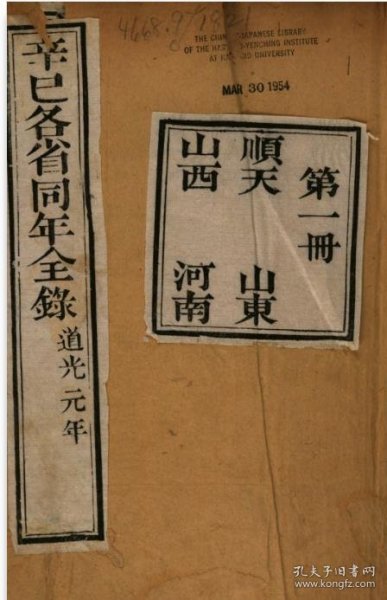 4668.9/1821
THE CHINESE-JAPANESE LIBRARY
OF THE HARVARD-YENCHING INSTITUTE
AT HARVARD UNIVERSITY
MAR 30 1954
第一冊
順天 山東
山西 河南
辛巳各省同年全錄
道光元年
孔夫子旧书网
www.kongfz.com